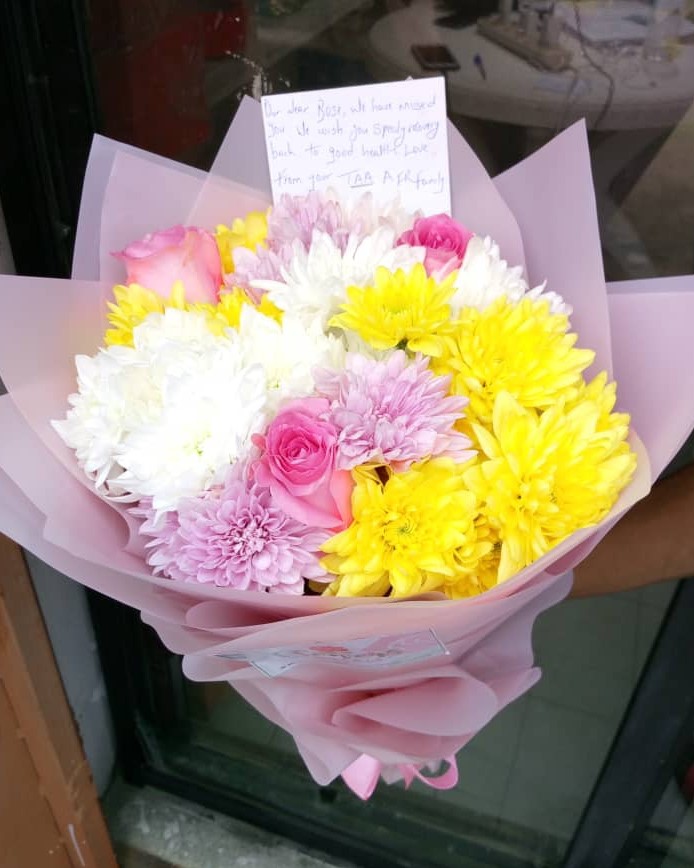 Our dear Rose, we have missed
you we wish you speedy recovery
back to good health. Love.
From your TAA AFR family